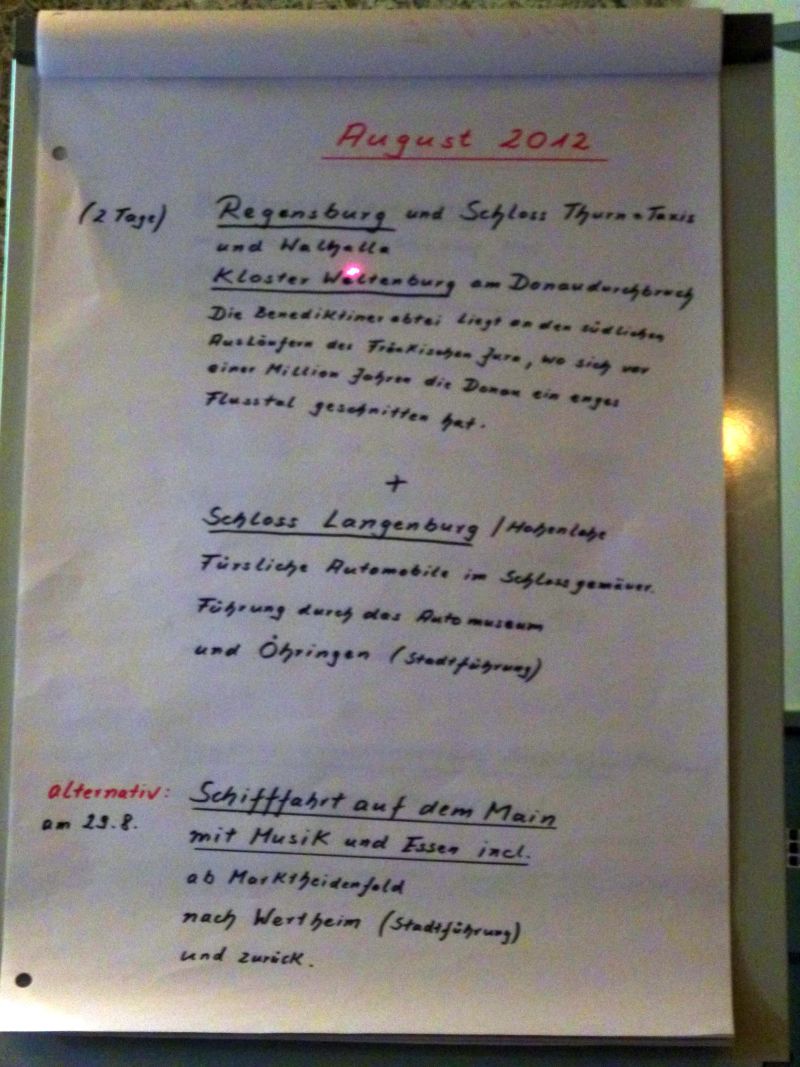 August 2012
(2 Tage) Regensburg und Schloss Thurn + Taxis
und Walhalla
Kloster Weltenburg am Donaudurchbruch
Die Benediktinerabtei liegt an den südlichen
Ausläufern des Fränkischen Jura, wo sich vor
einer Million Jahren die Donau ein enges
Flusstal geschnitten hat.
+
Schloss Langenburg / Hohenlohe
Fürsliche Automobile im Schlossgemäuer.
Führung durch das Automuseum
und Öhringen (Stadtführung)
alternativ: Schifffahrt auf dem Main
am 29.8. mit Musik und Essen incl.
ab Marktheidenfeld
nach Wertheim (Stadtführung)
und zurück.